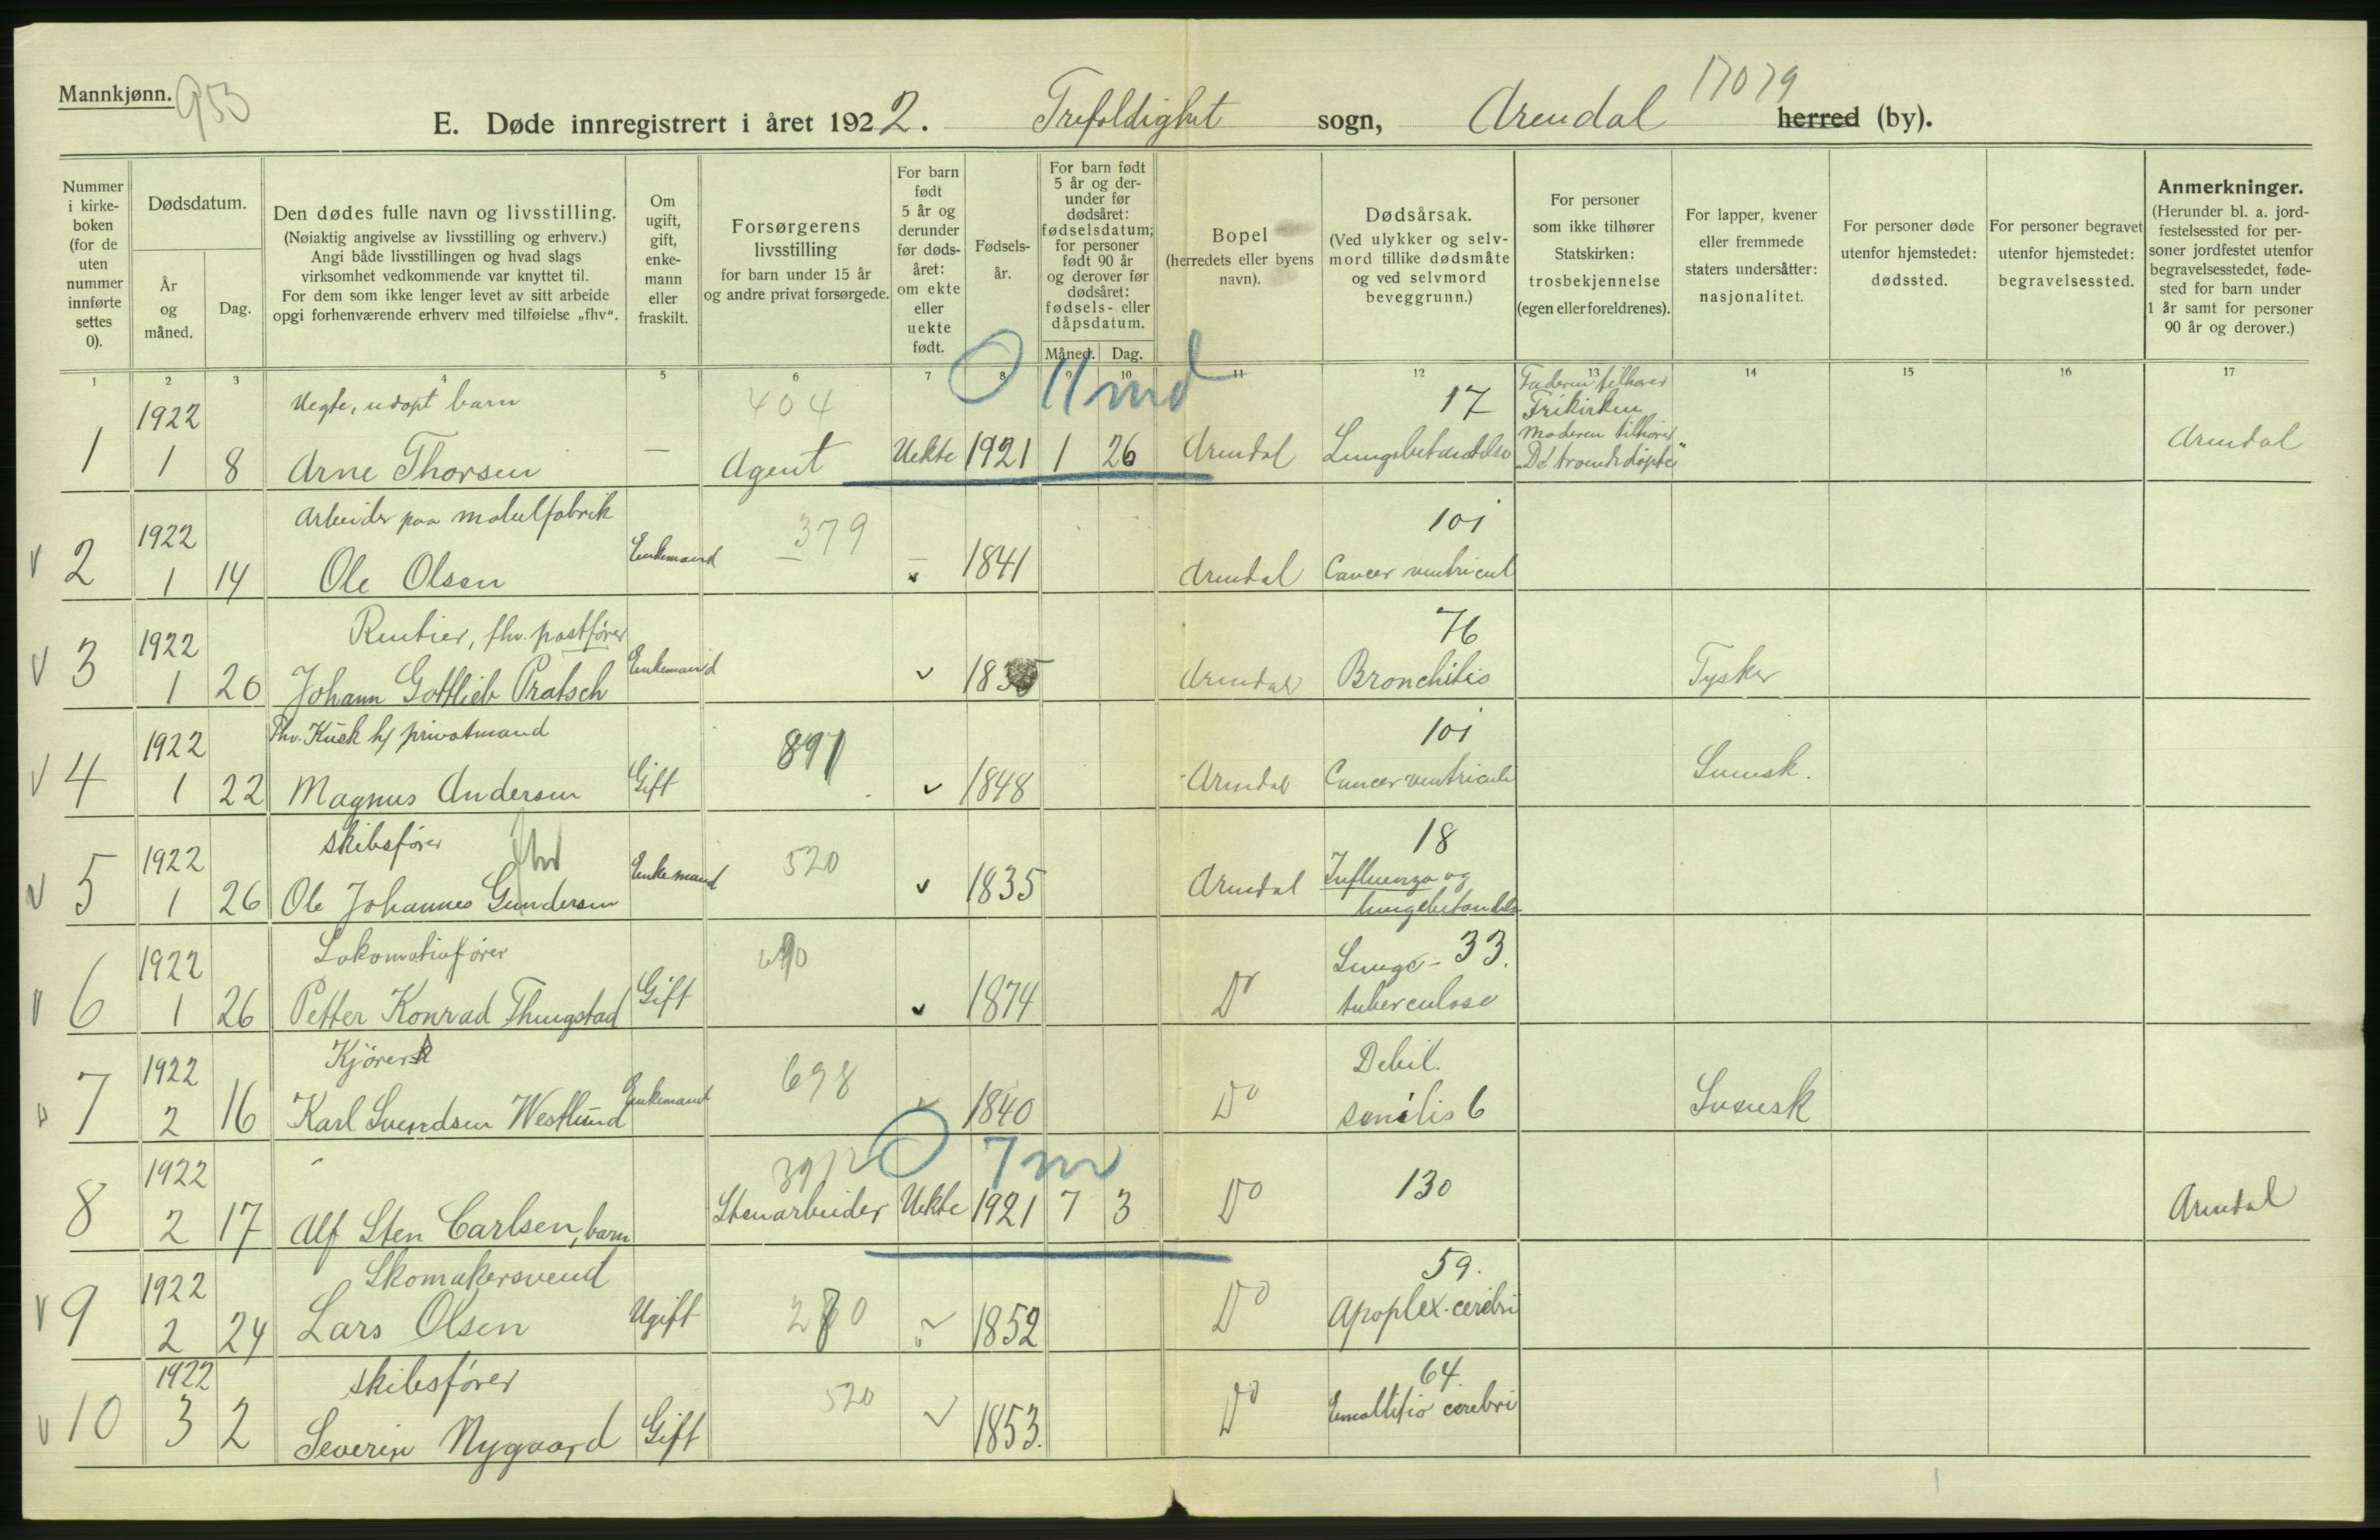 Mannkjønn. 953
17079
E. Døde innregistrert i året 1922. Trefoldighet sogn, Arendal herred (by).
Nummer i kirke-boken (for de uten nummer innførte settes 0).
Dødsdatum.
År og måned.
Dag.
Den dødes fulle navn og livsstilling.
(Nøiaktig angivelse av livsstilling og erhverv.)
Angi både livsstillingen og hvad slags
virksomhet vedkommende var knyttet til.
For dem som ikke lenger levet av sitt arbeide
opgi forhenværende erhverv med tilføielse „fhv“.
Om ugift, gift, enke-mann eller fraskilt.
Forsørgerens livsstilling
for barn under 15 år
og andre privat forsørgede.
For barn født 5 år og derunder før døds-året: om ekte eller uekte født.
Fødsels-år.
For barn født 5 år og der-under før dødsåret: fødselsdatum; for personer født 90 år og derover før dødsåret: fødsels- eller dåpsdatum.
Måned. Dag.
Bopel
(herredets eller byens navn).
Dødsårsak.
(Ved ulykker og selv-mord tillike dødsmåte og ved selvmord beveggrunn.)
For personer som ikke tilhører Statskirken:
trosbekjennelse
(egen eller foreldrenes).
For lapper, kvener eller fremmede staters undersåtter:
nasjonalitet.
For personer døde utenfor hjemstedet:
dødssted.
For personer begravet utenfor hjemstedet:
begravelsessted.
Anmerkninger.
(Herunder bl. a. jord-festelsessted for per-soner jordfestet utenfor begravelsesstedet, føde-sted for barn under 1 år samt for personer 90 år og derover.)
1 2 3 4 5 6 7 8 9 10 11 12 13 14 15 16 17
0 11 md
1922 Uegte, adopt barn 404 17 Faderen tilhører Frikirken
1 1 8 Arne Thorsen — Agent Uekte 1921 1 26 Arendal Lungebetændelse Moderen tilhører „De troende døpte“ Arendal
1922 Arbeider paa møbelfabrik 379 101
v 2 1 14 Ole Olsen Enkemand 1841 Arendal Cancer ventricul
1922 Rentier, fhv. postfører 76
v 3 1 20 Johann Gottlieb Pratsch Enkemand v 1835 Arendal Bronchitis Tysker
1922 Fhv. Kusk h/ privatmand 891 101
v 4 1 22 Magnus Andersen Gift v 1848 Arendal Cancer ventriculi Svensk.
1922 skibsfører fhv 520 18
v 5 1 26 Ole Johannes Gundersen Enkemand v 1835 Arendal Influenza og lungebetændelse
1922 Lokomotivfører Lunge- 33.
v 6 1 26 Petter Konrad Thingstad Gift v 1874 Do tuberculose
1922 Kjører 698 Debil.
v 7 2 16 Karl Svendsen Westlund Enkemand v 1840 Do senilis 6 Svensk
0 7 m
1922 391 130
8 2 17 Alf Sten Carlsen, barn Stenarbeider Uekte 1921 7 3 Do Arendal
1922 Skomakersvend 59.
v 9 2 24 Lars Olsen Ugift 280 v 1852 Do Apoplex. cerebri
1922 skibsfører 520 64.
v 10 3 2 Severin Nygaard Gift v 1853. Do Emollitio cerebri